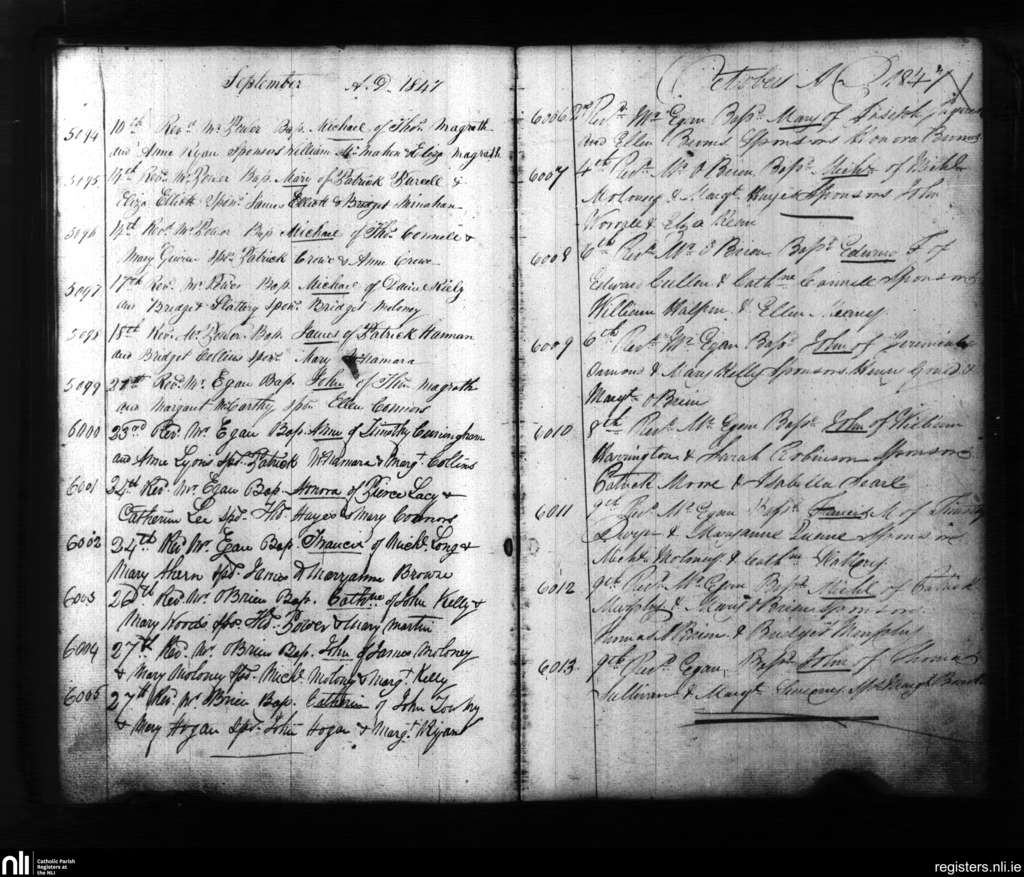 September A.D. 1847
5094 10th Revd. Mr. Power Bap. Michael of Thos. Magrath
and Anne Ryan Sponsors William Mc Mahon & Eliza Magrath
5095 14th Revd. Mr. Power Bap. Mary of Patrick Purcell &
Eliza Elliott Spons. James Elliott & Bridget
5096 14th Revd. Mr. Power Bap. Michael of Thos. &
Mary Spors. Patrick Crowe & Anne Crowe
5097 17th Revd. Mr. Power Bap. Michael of Daniel Kiely
and Bridget Slattery Spons. Bridget Moloney
5098 18th Revd. Mr. Power Bap. James of Patrick Hannan
and Bridget Collins Spons. Mary
5099 Revd. Mr. Egan Bap. John of Thos. Magrath
and Margaret McCarthy Spon. Ellen Connors
6000 23rd Revd. Mr. Egan Bap. Anne of Timothy Cunningham
and Anne Lyons Spd. Patrick McNamara & Margt. Collins
6001 24th Revd. Mr. Egan Bap. Honora of Pierce Lacy &
Catherine Lee Spd. Thos. Hayes & Mary Connors
6002 24th Revd. Mr. Egan Bap. Francis of Michl. Long &
Mary Ahern Spd. James & Maryanne Browne
6003 26th Revd. Mr. OBrien Bap. Cathne of John Kelly &
Mary Woods Spd. Thos. Power & Mary Martin
6004 27th Revd. Mr. OBrien Bap. John of James Moloney
& Mary Moloney Spd. Michl. Molony & Margt. Kelly
6005 27th Revd. Mr. OBrien Bap. Catherine of John
& Mary Hogan Spd. John Hogan & Margt. Ryan
October A D 1847
6006 2nd Revd. Mr. Egan Bapd. Mary of Joseph
and Ellen Burns Sponsors Honora Burns
6007 4th Revd. Mr. O Brien Bapd. Michl. of Michl.
Moloney & Margt. Hayes Sponsors John
& Eliza
6008 6th Revd. Mr. O Brien Bapd. Edward F of
Edward Cullen & Cathne Sponsors
William Halpin & Ellen Kearney
6009 6th Revd. Mr. Egan Bapd. John of Jeremiah
& Mary Kelly Sponsors &
Margt. OBrien
6010 8th Revd. Mr. Egan Bapd. John of William
Harrington & Sarah Robinson Sponsors
Patrick & Isabella Searl
6011 9th Revd. Mr. Egan Bapd. M. of Timothy
Dwyer & Maryanne Quane Sponsors
Michl. Molony & Cathne Slattery
6012 9th Revd. Mr. Egan Bapd. Michl. of Patrick
Murphy & Mary OBrien Sponsors
OBrien & Bridget Murphy
6013 9th Revd. Egan Bapd. John of Thomas
Sullivan & Margt. Spd. Margt.
nli
Catholic Parish
Registers at
the NLI
registers.nli.ie